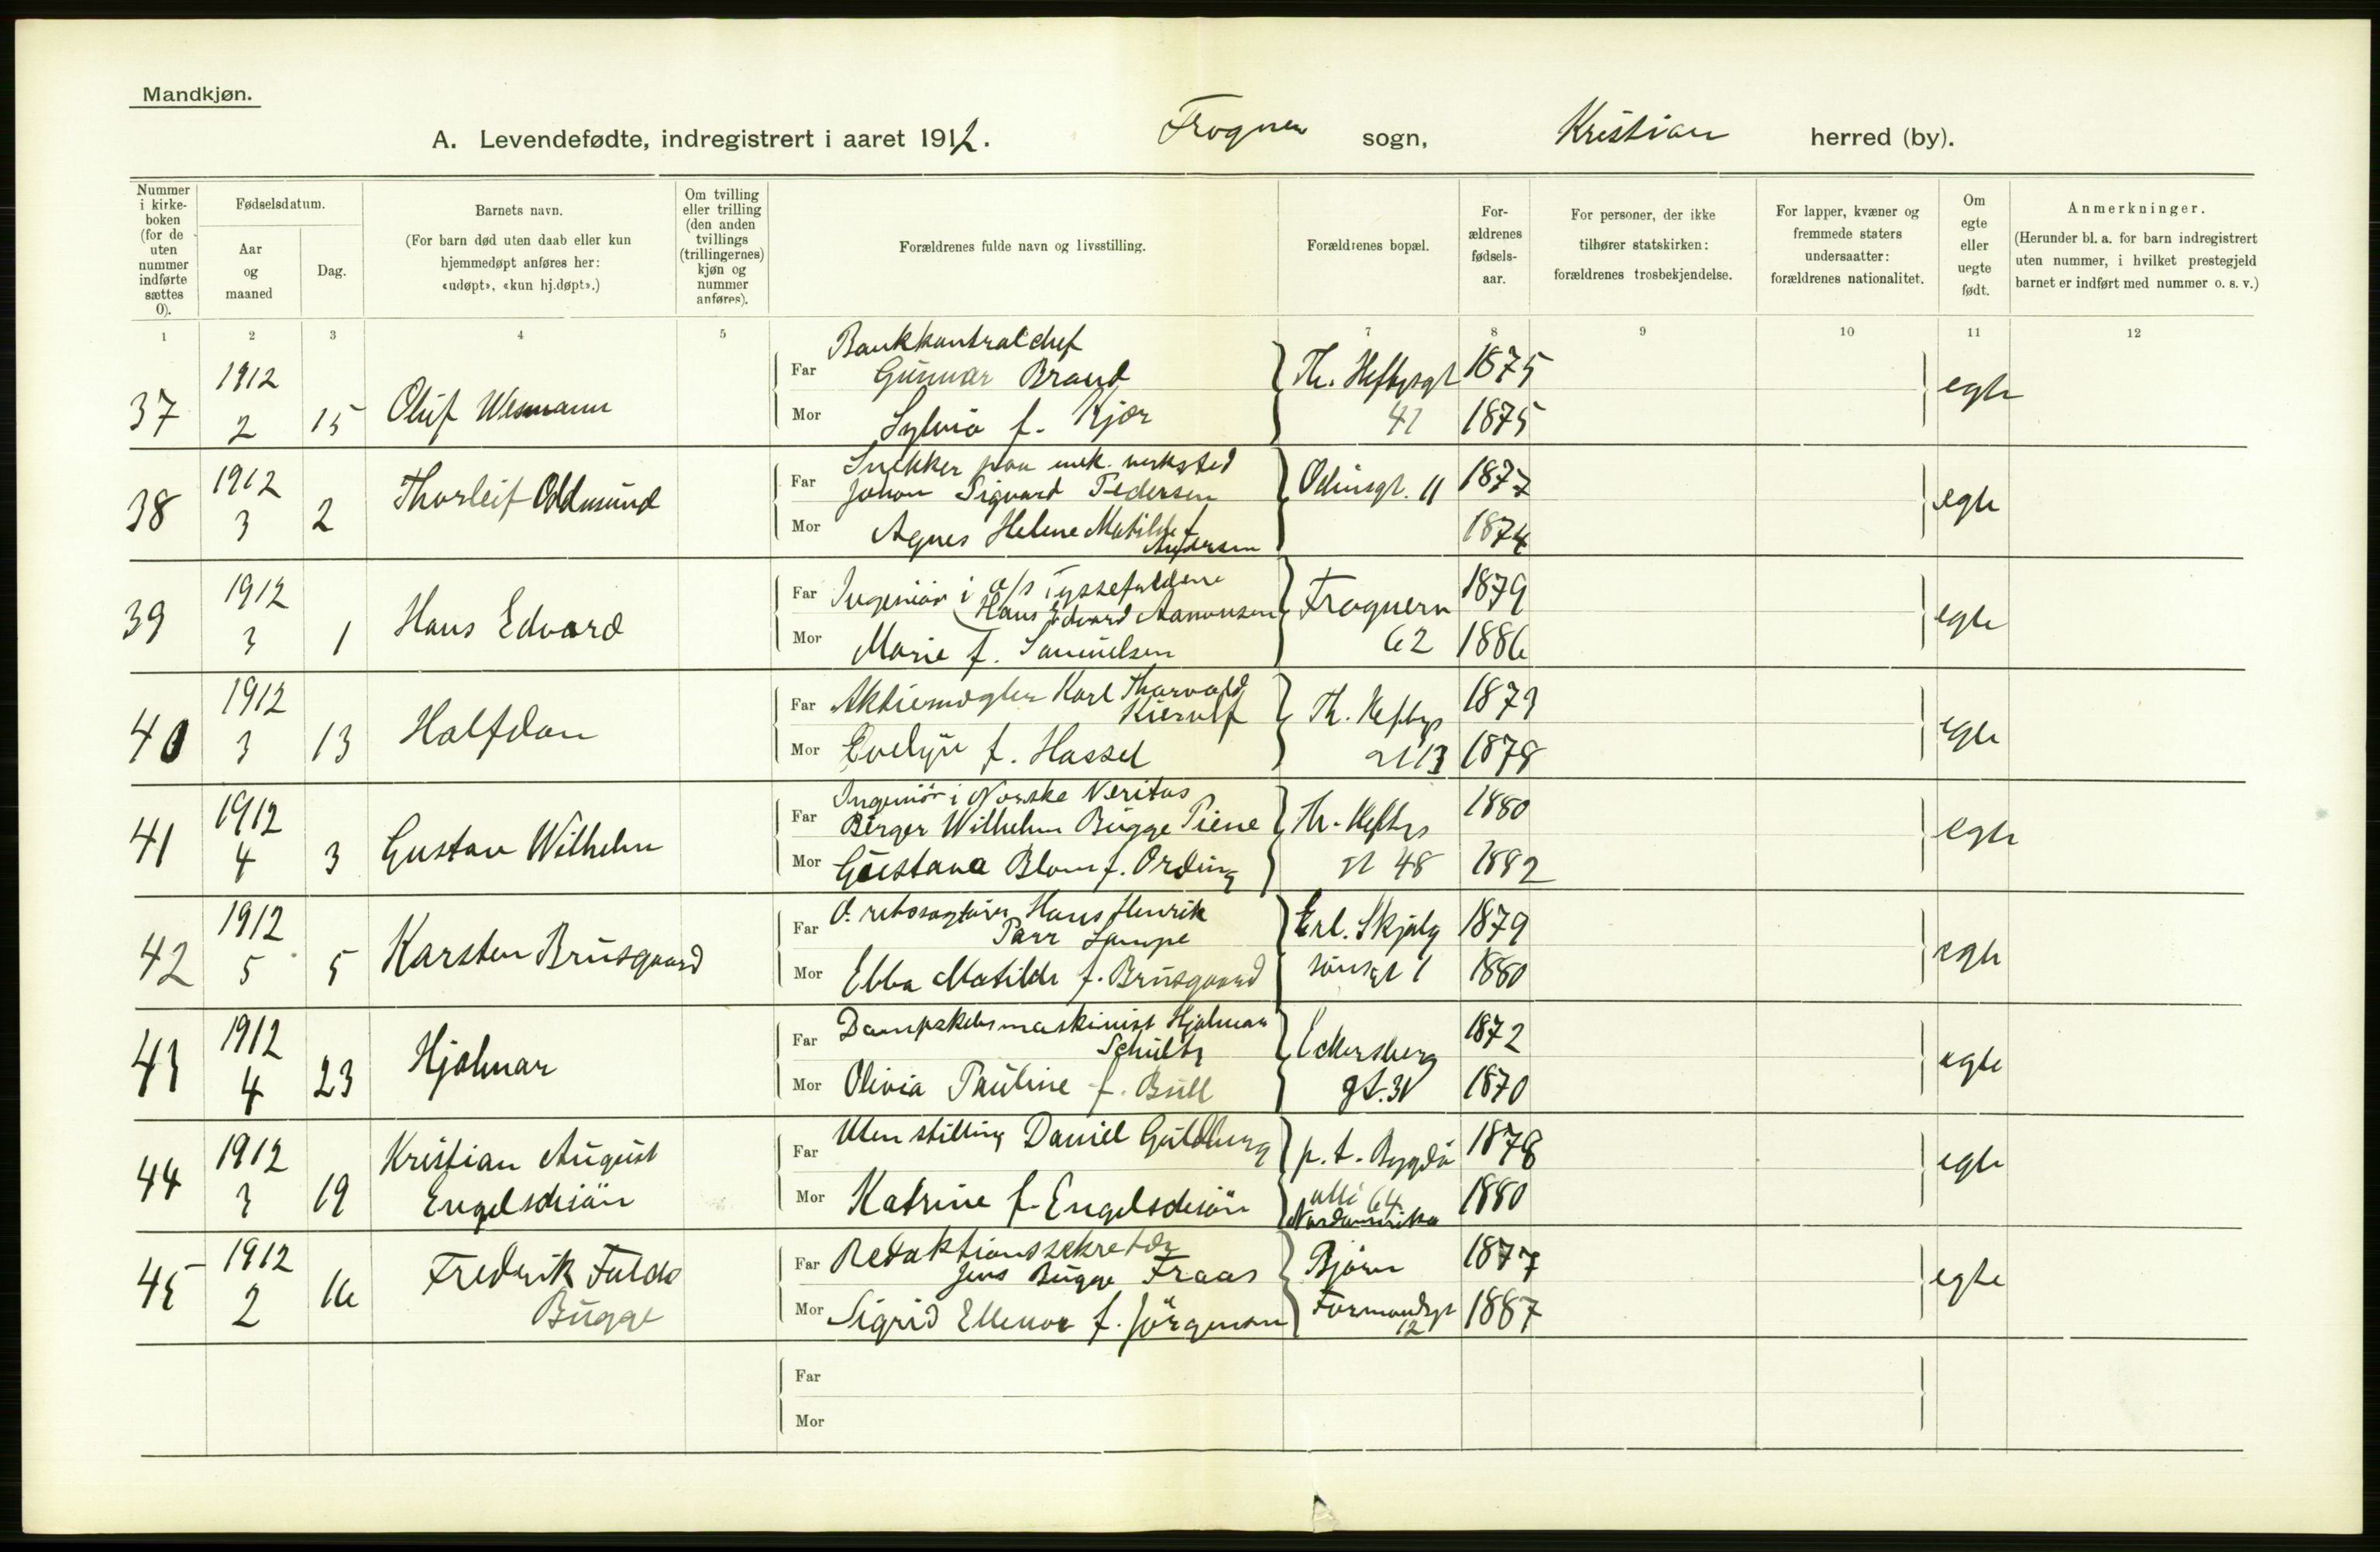 Mandkjøn.
A. Levendefødte, indregistrert i aaret 1912. Frogner sogn, Kristian herred (by).
Nummer i kirke-boken (for de uten nummer indførte sættes 0).
Fødselsdatum.
Aar og maaned
Dag.
Barnets navn.
(For barn død uten daab eller kun hjemmedøpt anføres her: «udøpt», «kun hj.døpt».)
Om tvilling eller trilling (den anden tvillings (trillingernes) kjøn og nummer anføres).
Forældrenes fulde navn og livsstilling.
Forældrenes bopæl.
For-ældrenes fødsels-aar.
For personer, der ikke tilhører statskirken: forældrenes trosbekjendelse.
For lapper, kvæner og fremmede staters undersaatter: forældrenes nationalitet.
Om egte eller uegte født.
Anmerkninger.
(Herunder bl. a. for barn indregistrert uten nummer, i hvilket prestegjeld barnet er indført med nummer o. s. v.)
1 2 3 4 5 7 8 9 10 11 12
Bankkontrolchef
1912 Far Gunnar Brand Th. Heftysgt 1875
37 2 15 Oluf Wesmann Mor Sylvia f. Kjær 41 1875 egte
Snekker paa mek. verksted
1912 Far Johan Sigvard Pedersen Odinsgt. 11 1877
38 3 2 Thorleif Oddmund Mor Agnes Helene Matilde f. Andersen 1874 egte
1912 Far Ingeniör i A/S Tyssefaldene
Hans Edvard Aamonsen Frognerv 1879
39 3 1 Hans Edvard Mor Marie f. Samuelsen 62 1886 egte
1912 Far Aktiemægler Karl Thorvald
Kierulf Th. Heftys 1879
40 3 13 Halfdan Mor Evelyn f. Hassel gt 13 1878 egte
Ingeniör i Norske Veritas
1912 Far Birger Wilhelm Bugge Piene Th. Heftys 1880
41 4 3 Gustav Wilhelm Mor Gustava Blom f. Ording gt 48 1882 egte
1912 Far O. retssagförer Hans Henrik
Parr Lampe Erl. Skjalg 1879
42 5 5 Karsten Brusgaard Mor Ebba Matilde f. Brusgaard sönsgt 1 1880 egte
1912 Far Dampskibsmaskinist Hjalmar
Schultz Eckersberg 1872
43 4 23 Hjalmar Mor Olivia Pauline f. Bull gt. 31 1870 egte
1912 Kristian August Far Uten stilling Daniel Guldberg p. t. Bygdö 1878
44 3 19 Engelschiön Mor Katrine f. Engelschiön allé 64 1880 egte
Nordamerika
1912 Far Redaktionssekretær
Jens Bugge Fraas Björn 1877
45 2 16 Fredrik Fulda Bugge Mor Sigrid Ellenor f. Jörgensen Farmandsgt 12 1887 egte
Far
Mor